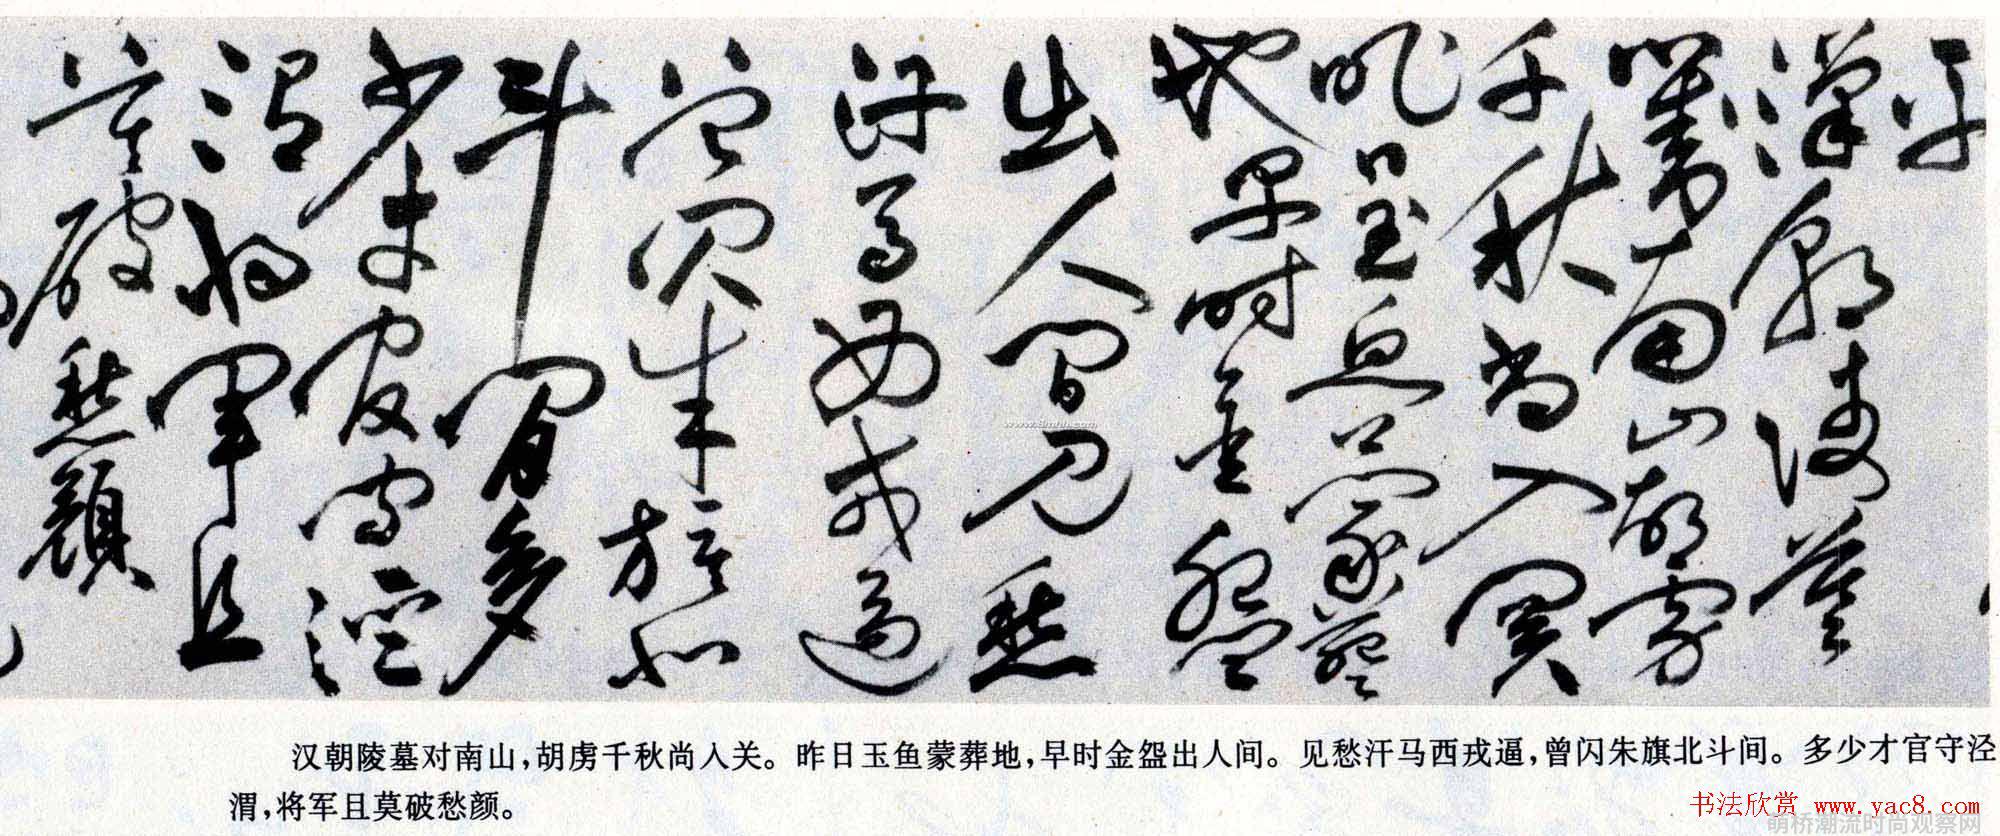 漢朝陵墓
對南山胡虜
千秋尚入関
昨日玉魚蒙葬
地早時金盌
出人間見愁
汗馬西戎逼
曾閃朱旗北
斗間多
少才官守涇
渭将軍且
莫破愁顔
汉朝陵墓对南山，胡虏千秋尚入关。昨日玉鱼蒙葬地，早时金盌出人间。见愁汗马西戎逼，曾闪朱旗北斗间。多少才官守泾
渭，将军且莫破愁颜。
书法欣赏 www.yac8.com
萌桥潮流时尚观察网